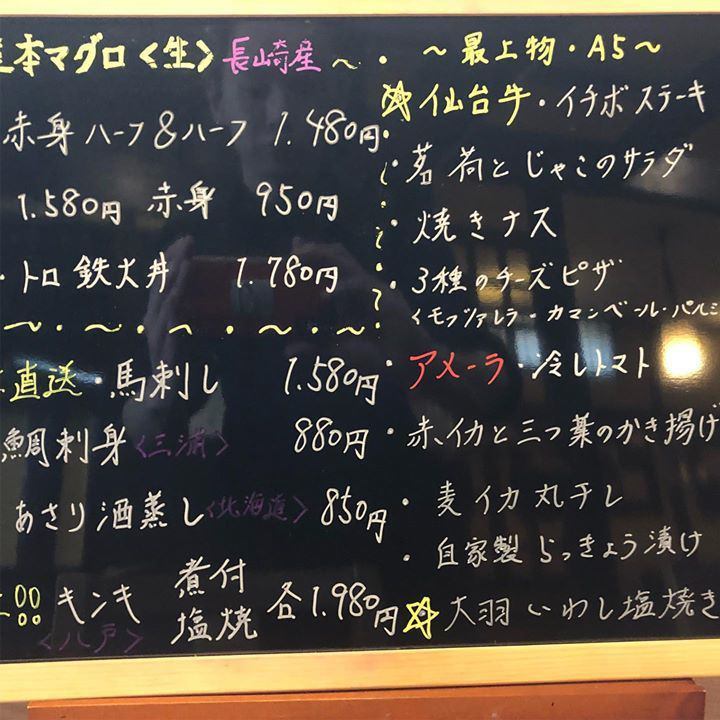 本マグロ〈生〉長崎産
赤身ハーフ&ハーフ 1.480円
1.580円 赤身 950円
・トロ鉄火丼 1.780円
直送・馬刺し 1.580円
鯛刺身〈三浦〉 880円
あさり酒蒸し〈北海道〉 850円
品 キンキ 煮付 塩焼 各1.980円
〈八戸〉
～最上物・A5～
☆仙台牛・イチボステーキ
・茗荷とじゃこのサラダ
・焼きナス
・3種のチーズピザ
〈モッツァレラ・カマンベール・パルミ
・アメーラ・冷しトマト
・赤イカと三つ葉のかき揚げ
・麦イカ丸干し
・自家製らっきょう漬け
☆大羽いわし塩焼き